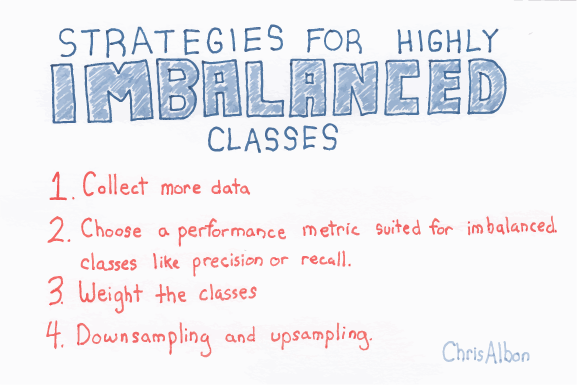 STRATEGIES FOR HIGHLY
IMBALANCED
CLASSES
1. Collect more data
2. Choose a performance metric suited for imbalanced
classes like precision or recall.
3. Weight the classes
4. Downsampling and upsampling.
Chris Albon